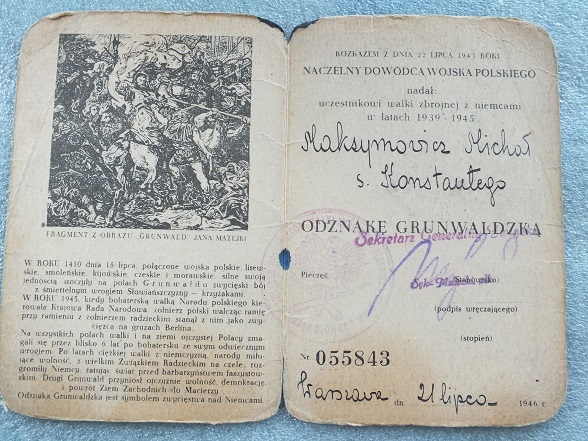 FRAGMENT Z OBRAZU „GRUNWALD" JANA MATEJKI
W ROKU 1410 dnia 15 lipca, połączone wojska polskie, litew-
skie, smoleńskie, kijowskie, czeskie i morawskie, silne swoją
jednością stoczyły na polach Grunwaldu zwycięski bój
z śmiertelnym wrogiem Słowiańszczyzny — krzyżakami.
W ROKU 1945, kiedy bohaterską walką Narodu polskiego kie-
rowała Krajowa Rada Narodowa, żołnierz polski walcząc ramię
przy ramieniu z żołnierzem radzieckim stanął z nim jako zwy-
cięzca na gruzach Berlina.
Na wszystkich polach walki i na ziemi ojczystej Polacy zma-
gali się przez blisko 6 lat po bohatersku ze swym odwiecznym
wrogiem. Po latach ciężkiej walki z niemczyzną, narody miłu-
jące wolność, z wielkim Związkiem Radzieckim na czele, roz-
gromiły Niemcy, ratując świat przed barbarzyństwem faszystow-
skim. Drugi Grunwald przyniósł ojczyźnie wolność, demokrację
i powrót Ziem Zachodnich do Macierzy.
Odznaka Grunwaldzka jest symbolem zwycięstwa nad Niemcami.
ROZKAZEM Z DNIA 22 LIPCA 1945 ROKU
NACZELNY DOWÓDCA WOJSKA POLSKIEGO
nadał:
uczestnikowi walki zbrojnej z niemcami
w latach 1939 - 1945
Maksymowicz Michał
s. Konstantego
ODZNAKĘ GRUNWALDZKĄ
Sekretarz Generalny
Pieczęć
(podpis wręczającego)
(stopień)
Nr 055843
Warszawa dn. 21 lipca 1946 r.